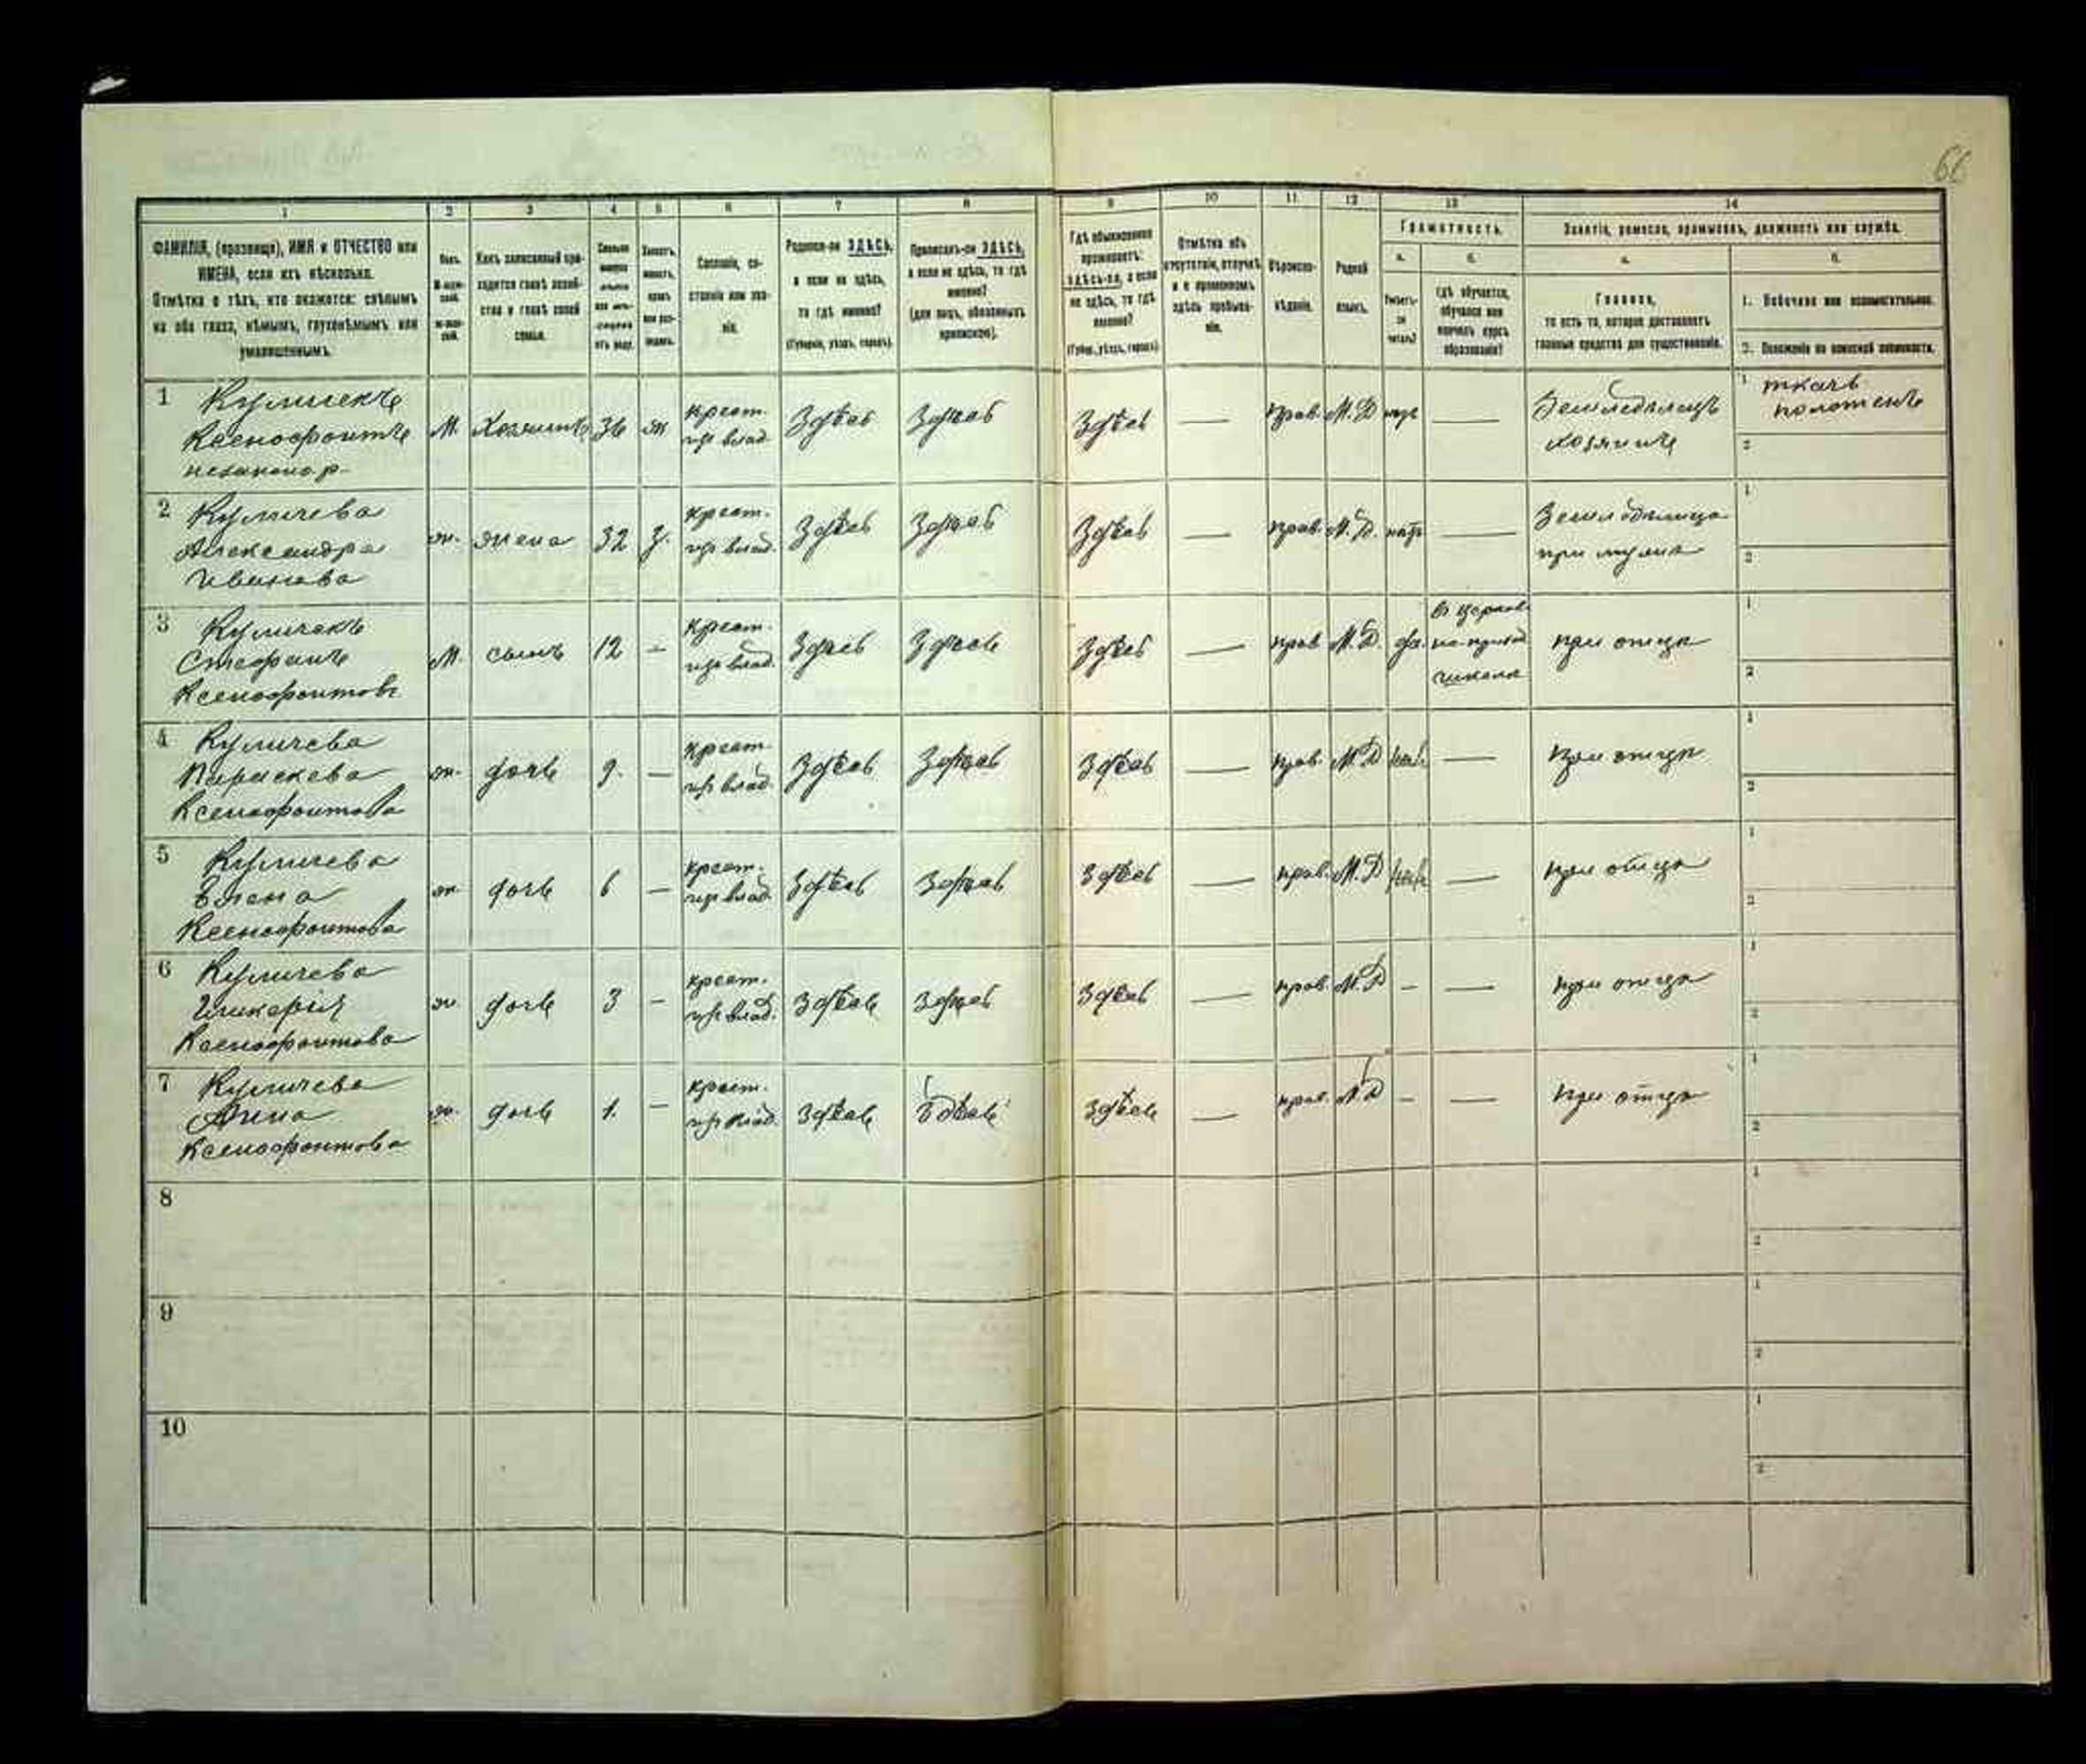 66
1 2 3 4 5 6 7 8 9 10 11 12 13 14
ФАМИЛІЯ, (прозвище), ИМЯ и ОТЧЕСТВО или
ИМЕНА, если ихъ нѣсколько.
Отмѣтка о тѣхъ, кто окажется: слѣпымъ
на оба глаза, нѣмымъ, глухонѣмымъ или
умалишеннымъ.
Полъ.
Какъ записанный при-
ходится главѣ хозяй-
ства и главѣ своей
семьи.
Сословіе, со-
стояніе или зва-
ніе.
Родился-ли ЗДѢСЬ,
а если не здѣсь,
то гдѣ именно?
(Губернія, уѣздъ, городъ).
Приписанъ-ли ЗДѢСЬ,
а если не здѣсь, то гдѣ
именно?
(для лицъ, обязанныхъ
припискою).
Гдѣ обыкновенно
проживаетъ:
здѣсь-ли, а если
не здѣсь, то гдѣ
именно?
(Губер., уѣздъ, городъ).
Отмѣтка объ
отсутствіи, отлучкѣ
и о временномъ
здѣсь пребыва-
ніи.
Вѣроиспо-
вѣданіе.
Родной
языкъ.
Грамотность.
а. б.
Умѣетъ-
ли
читать?
гдѣ обучается,
обучался или
кончилъ курсъ
образованія?
Занятіе, ремесло, промыселъ, должность или служба.
а. б.
Главное,
то есть то, которое доставляетъ
главныя средства для существованія.
1. Побочное или вспомогательное.
2. Положеніе по воинской повинности.
1 Куличекъ
Ксенофонтъ
незаконо.р.
М. Хозяинъ 36 ж
крест.
изъ влад.
Здѣсь Здѣсь Здѣсь — прав. М.Р нѣтъ —
Земледѣлецъ
хозяинъ
1 ткачъ
полотенъ
2
2 Куличева
Александра
Иванова
ж. жена 32 з.
крест.
изъ влад.
Здѣсь Здѣсь Здѣсь — прав. М.Р. нѣтъ —
Земледѣлица
при мужѣ
1
2
3 Куличекъ
Стефанъ
Ксенофонтовъ
М. сынъ 12 —
крест.
изъ влад.
Здѣсь Здѣсь Здѣсь — прав М.Р. да.
въ церков
но приход
школѣ
при отцѣ
1
2
4 Куличева
Параскева
Ксенофонтова
ж. дочь 9. —
крест.
изъ влад.
Здѣсь Здѣсь Здѣсь — прав. М.Р —
при отцѣ
1
2
5 Куличева
Елена
Ксенофонтова
ж. дочь 6 —
крест.
изъ влад.
Здѣсь Здѣсь Здѣсь — прав. М.Р —
при отцѣ
1
2
6 Куличева
Гликерія
Ксенофонтова
ж. дочь 3 —
крест.
изъ влад.
Здѣсь Здѣсь Здѣсь — прав. М.Р — —
при отцѣ
1
2
7 Куличева
Анна
Ксенофонтова
ж. дочь 1. —
крест.
изъ влад.
Здѣсь Здѣсь Здѣсь — прав. М.Р — —
при отцѣ
1
2
8
1
2
9
1
2
10
1
2